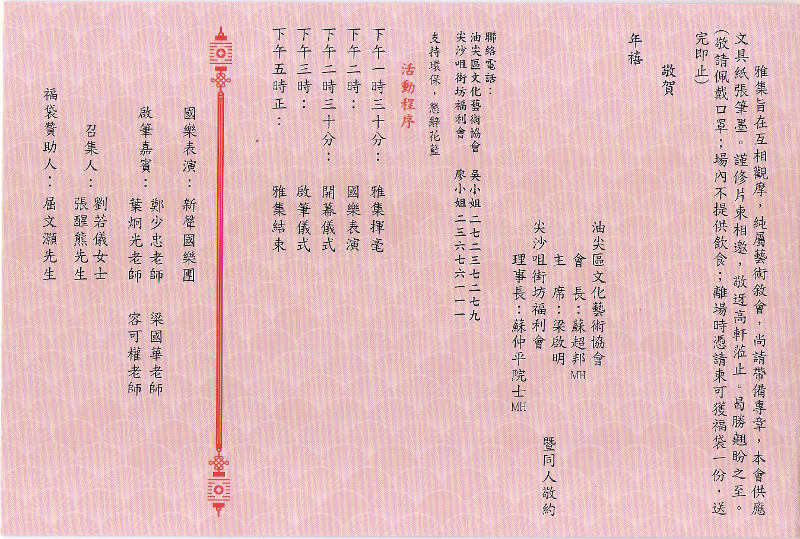 雅集旨在互相觀摩，純屬藝術敘會，尚請帶備專章，本會供應
文具紙張筆墨。謹修片柬相邀，敬迓高軒蒞止。曷勝翹盼之至。
（敬請佩戴口罩；場內不提供飲食；離場時憑請柬可獲福袋一份，送
完即止）
敬賀
年禧
油尖區文化藝術協會
會　長：蘇超邦MH
主　席：梁啟明
尖沙咀街坊福利會
理事長：蘇仲平院士MH
暨同人敬約
聯絡電話：
油尖區文化藝術協會　吳小姐二七二三七二七九
尖沙咀街坊福利會　廖小姐二三六七六一一一
支持環保，懇辭花籃
活動程序
下午一時三十分：　雅集揮毫
下午二時：　國樂表演
下午二時三十分：　開幕儀式
下午三時：　啟筆儀式
下午五時正：　雅集結束
國樂表演：新聲國樂團
啟筆嘉賓：鄭少忠老師　梁國華老師
葉炯光老師　容可權老師
召集人：劉若儀女士
張醒熊先生
福袋贊助人：屈文灝先生